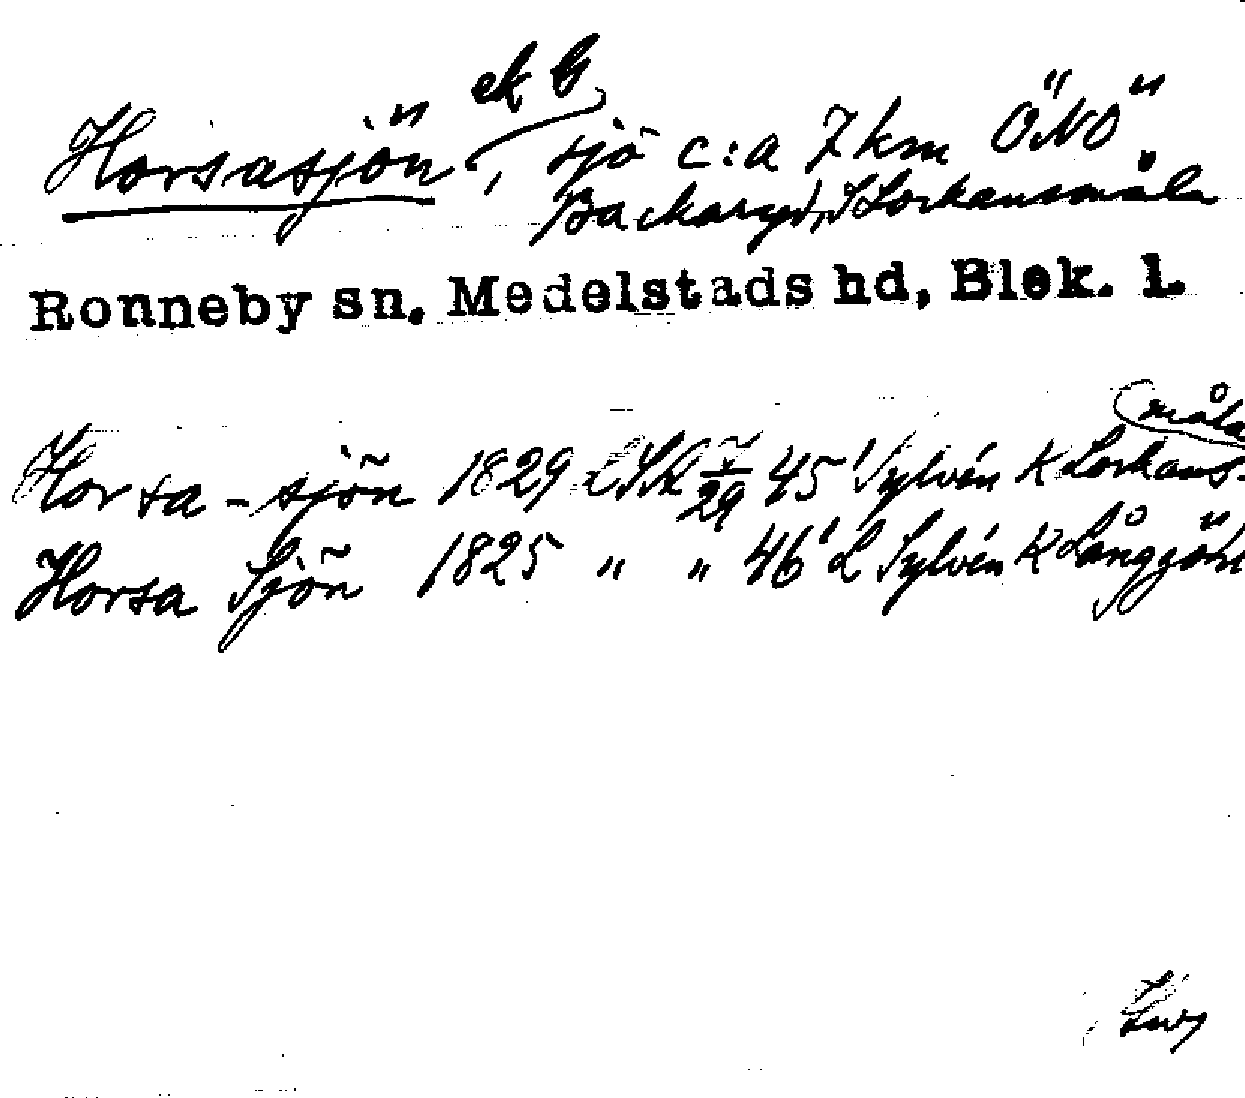 Horsasjön, ek G sjö c:a 7 km ÖNÖ
Backaryd, S Lorkansmåla
Ronneby sn. Medelstads hd, Blek. l.
Horsa-sjön 1829 LSK 7/29 45 Sylvén K Lorkans-måla
Horsa Sjön 1825 " " 46 L Sylvén K Långgöl